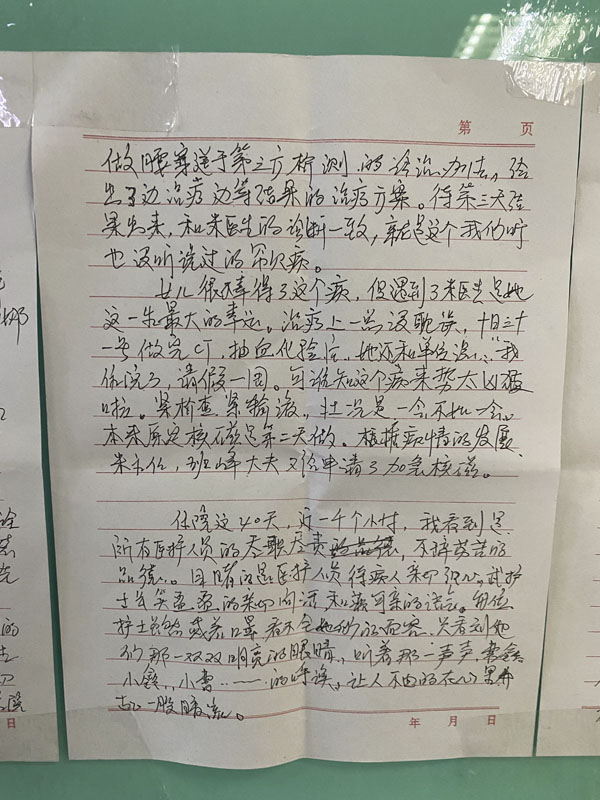 第 页
做腰穿送于第三方检测的诊治办法，给
出了边治疗边等结果的治疗方案。待第三天结
果出来，和朱医生的诊断一致，就是这个我们听
也没听说过的罕见病。
女儿很不幸得了这个病，但遇到了朱医生是她
这一生最大的幸运。治疗上一点没耽误，十月三十
一号做完CT，抽血化验后，她还和单位说："我
住院了，请假一周。可谁知这个病来势太凶猛
啦。紧检查紧输液，状况是一会不如一会。
本来原定核磁是第二天做。根据病情的发展
朱主任，班峰大夫又给申请了加急核磁。
住院这40天，近一千个小时，我看到是
所有医护人员的尽职尽责，不辞劳苦的
品德。目睹的是医护人员待病人亲切
士笑盈盈的亲切问话和蔼可亲的话气。每位
护士虽然戴着口罩，看不全她们的面容，只看到她
们那一双双明亮的眼睛，听着那一声声
小，小曹……的呼唤，让人不由的在心里升
起一股暖流。
年 月 日
那
的
日